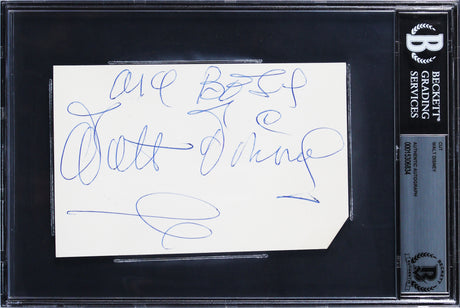 All Best
Walt Disney
BECKETT
GRADING
SERVICES
CUT
WALT DISNEY
AUTHENTIC AUTOGRAPH
BECKETT